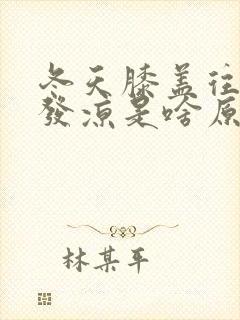 冬天膝盖往
發涼是啥原
林某平